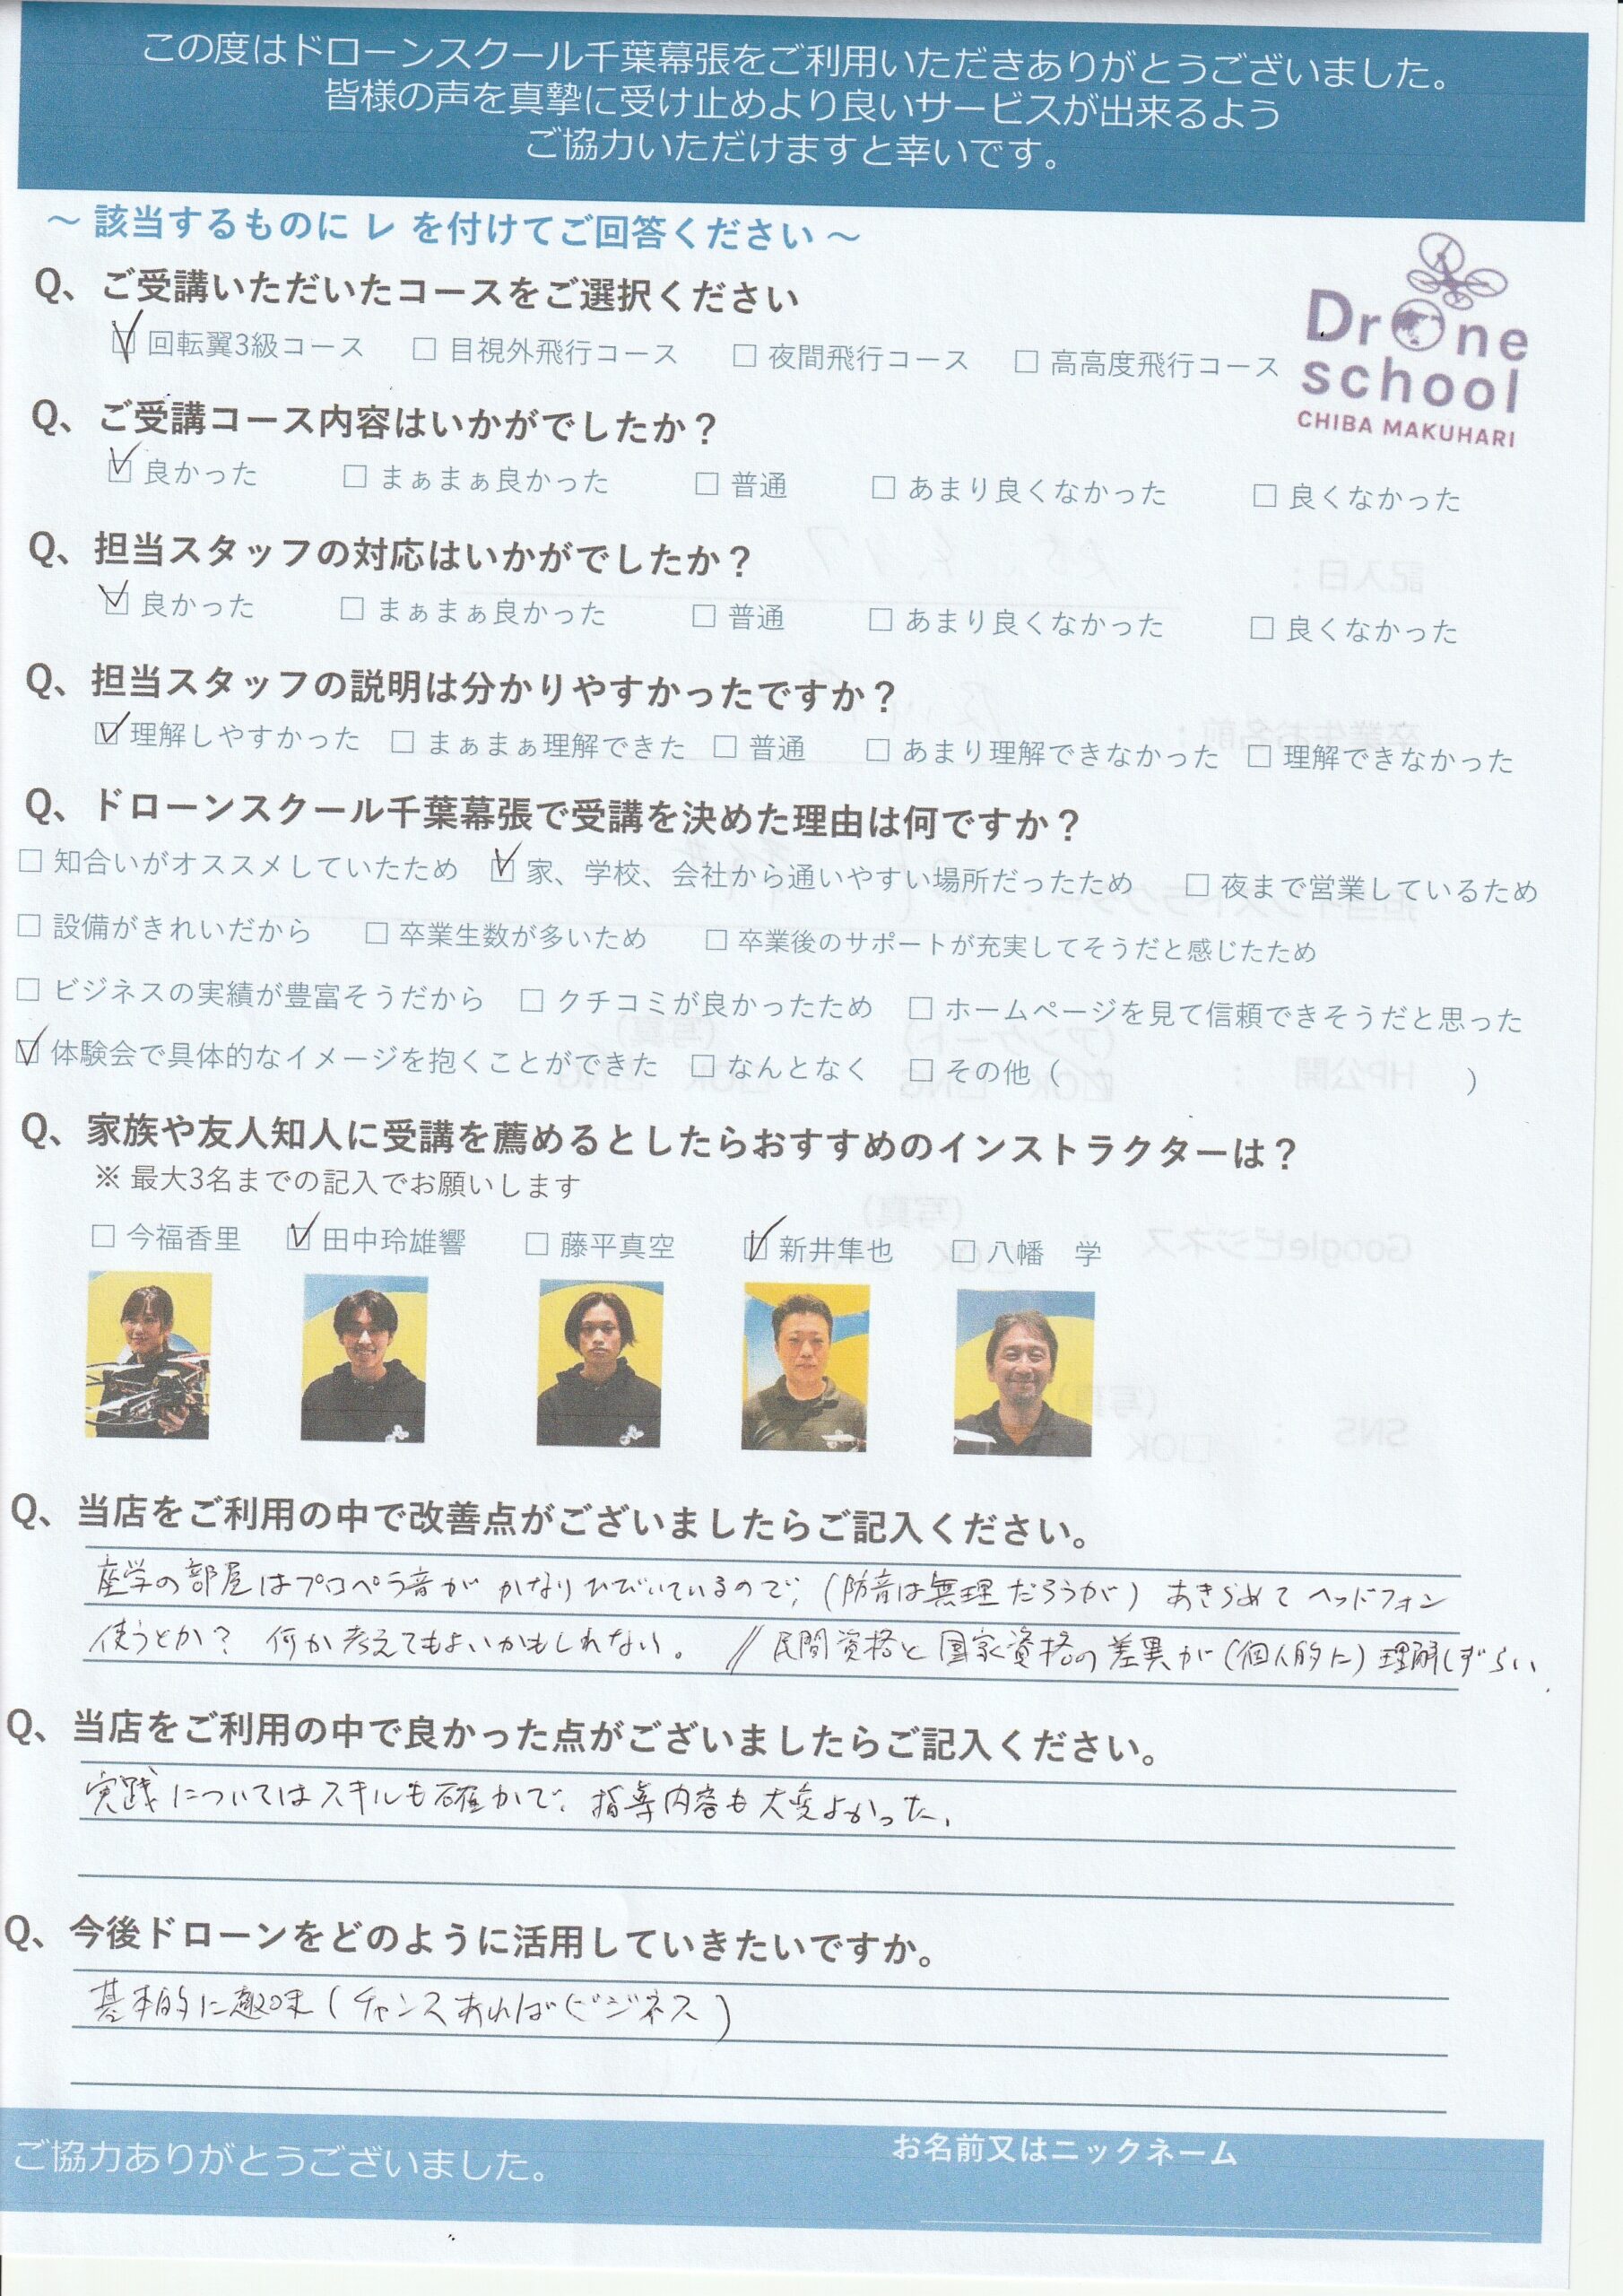 この度はドローンスクール千葉幕張をご利用いただきありがとうございました。
皆様の声を真摯に受け止めより良いサービスが出来るよう
ご協力いただけますと幸いです。
～ 該当するものに レ を付けてご回答ください ～
Drone
school
CHIBA MAKUHARI
Q、ご受講いただいたコースをご選択ください
☑ 回転翼3級コース □ 目視外飛行コース □ 夜間飛行コース □ 高高度飛行コース
Q、ご受講コース内容はいかがでしたか？
☑ 良かった □ まぁまぁ良かった □ 普通 □ あまり良くなかった □ 良くなかった
Q、担当スタッフの対応はいかがでしたか？
☑ 良かった □ まぁまぁ良かった □ 普通 □ あまり良くなかった □ 良くなかった
Q、担当スタッフの説明は分かりやすかったですか？
☑ 理解しやすかった □ まぁまぁ理解できた □ 普通 □ あまり理解できなかった □ 理解できなかった
Q、ドローンスクール千葉幕張で受講を決めた理由は何ですか？
□ 知合いがオススメしていたため ☑ 家、学校、会社から通いやすい場所だったため □ 夜まで営業しているため
□ 設備がきれいだから □ 卒業生数が多いため □ 卒業後のサポートが充実してそうだと感じたため
□ ビジネスの実績が豊富そうだから □ クチコミが良かったため □ ホームページを見て信頼できそうだと思った
☑ 体験会で具体的なイメージを抱くことができた □ なんとなく □ その他（ ）
Q、家族や友人知人に受講を薦めるとしたらおすすめのインストラクターは？
※ 最大3名までの記入でお願いします
□ 今福香里 ☑ 田中玲雄響 □ 藤平真空 ☑ 新井隼也 □ 八幡 学
Q、当店をご利用の中で改善点がございましたらご記入ください。
座学の部屋はプロペラ音がかなりひびいているので、(防音は無理だろうが) あきらめてヘッドフォン
使うとか？ 何か考えてもよいかもしれない。 // 民間資格と国家資格の差異が(個人的に)理解しずらい
Q、当店をご利用の中で良かった点がございましたらご記入ください。
実践についてはスキルも確かで、指導内容も大変よかった、
Q、今後ドローンをどのように活用していきたいですか。
基本的に趣味(チャンスあればビジネス)
ご協力ありがとうございました。
お名前又はニックネーム